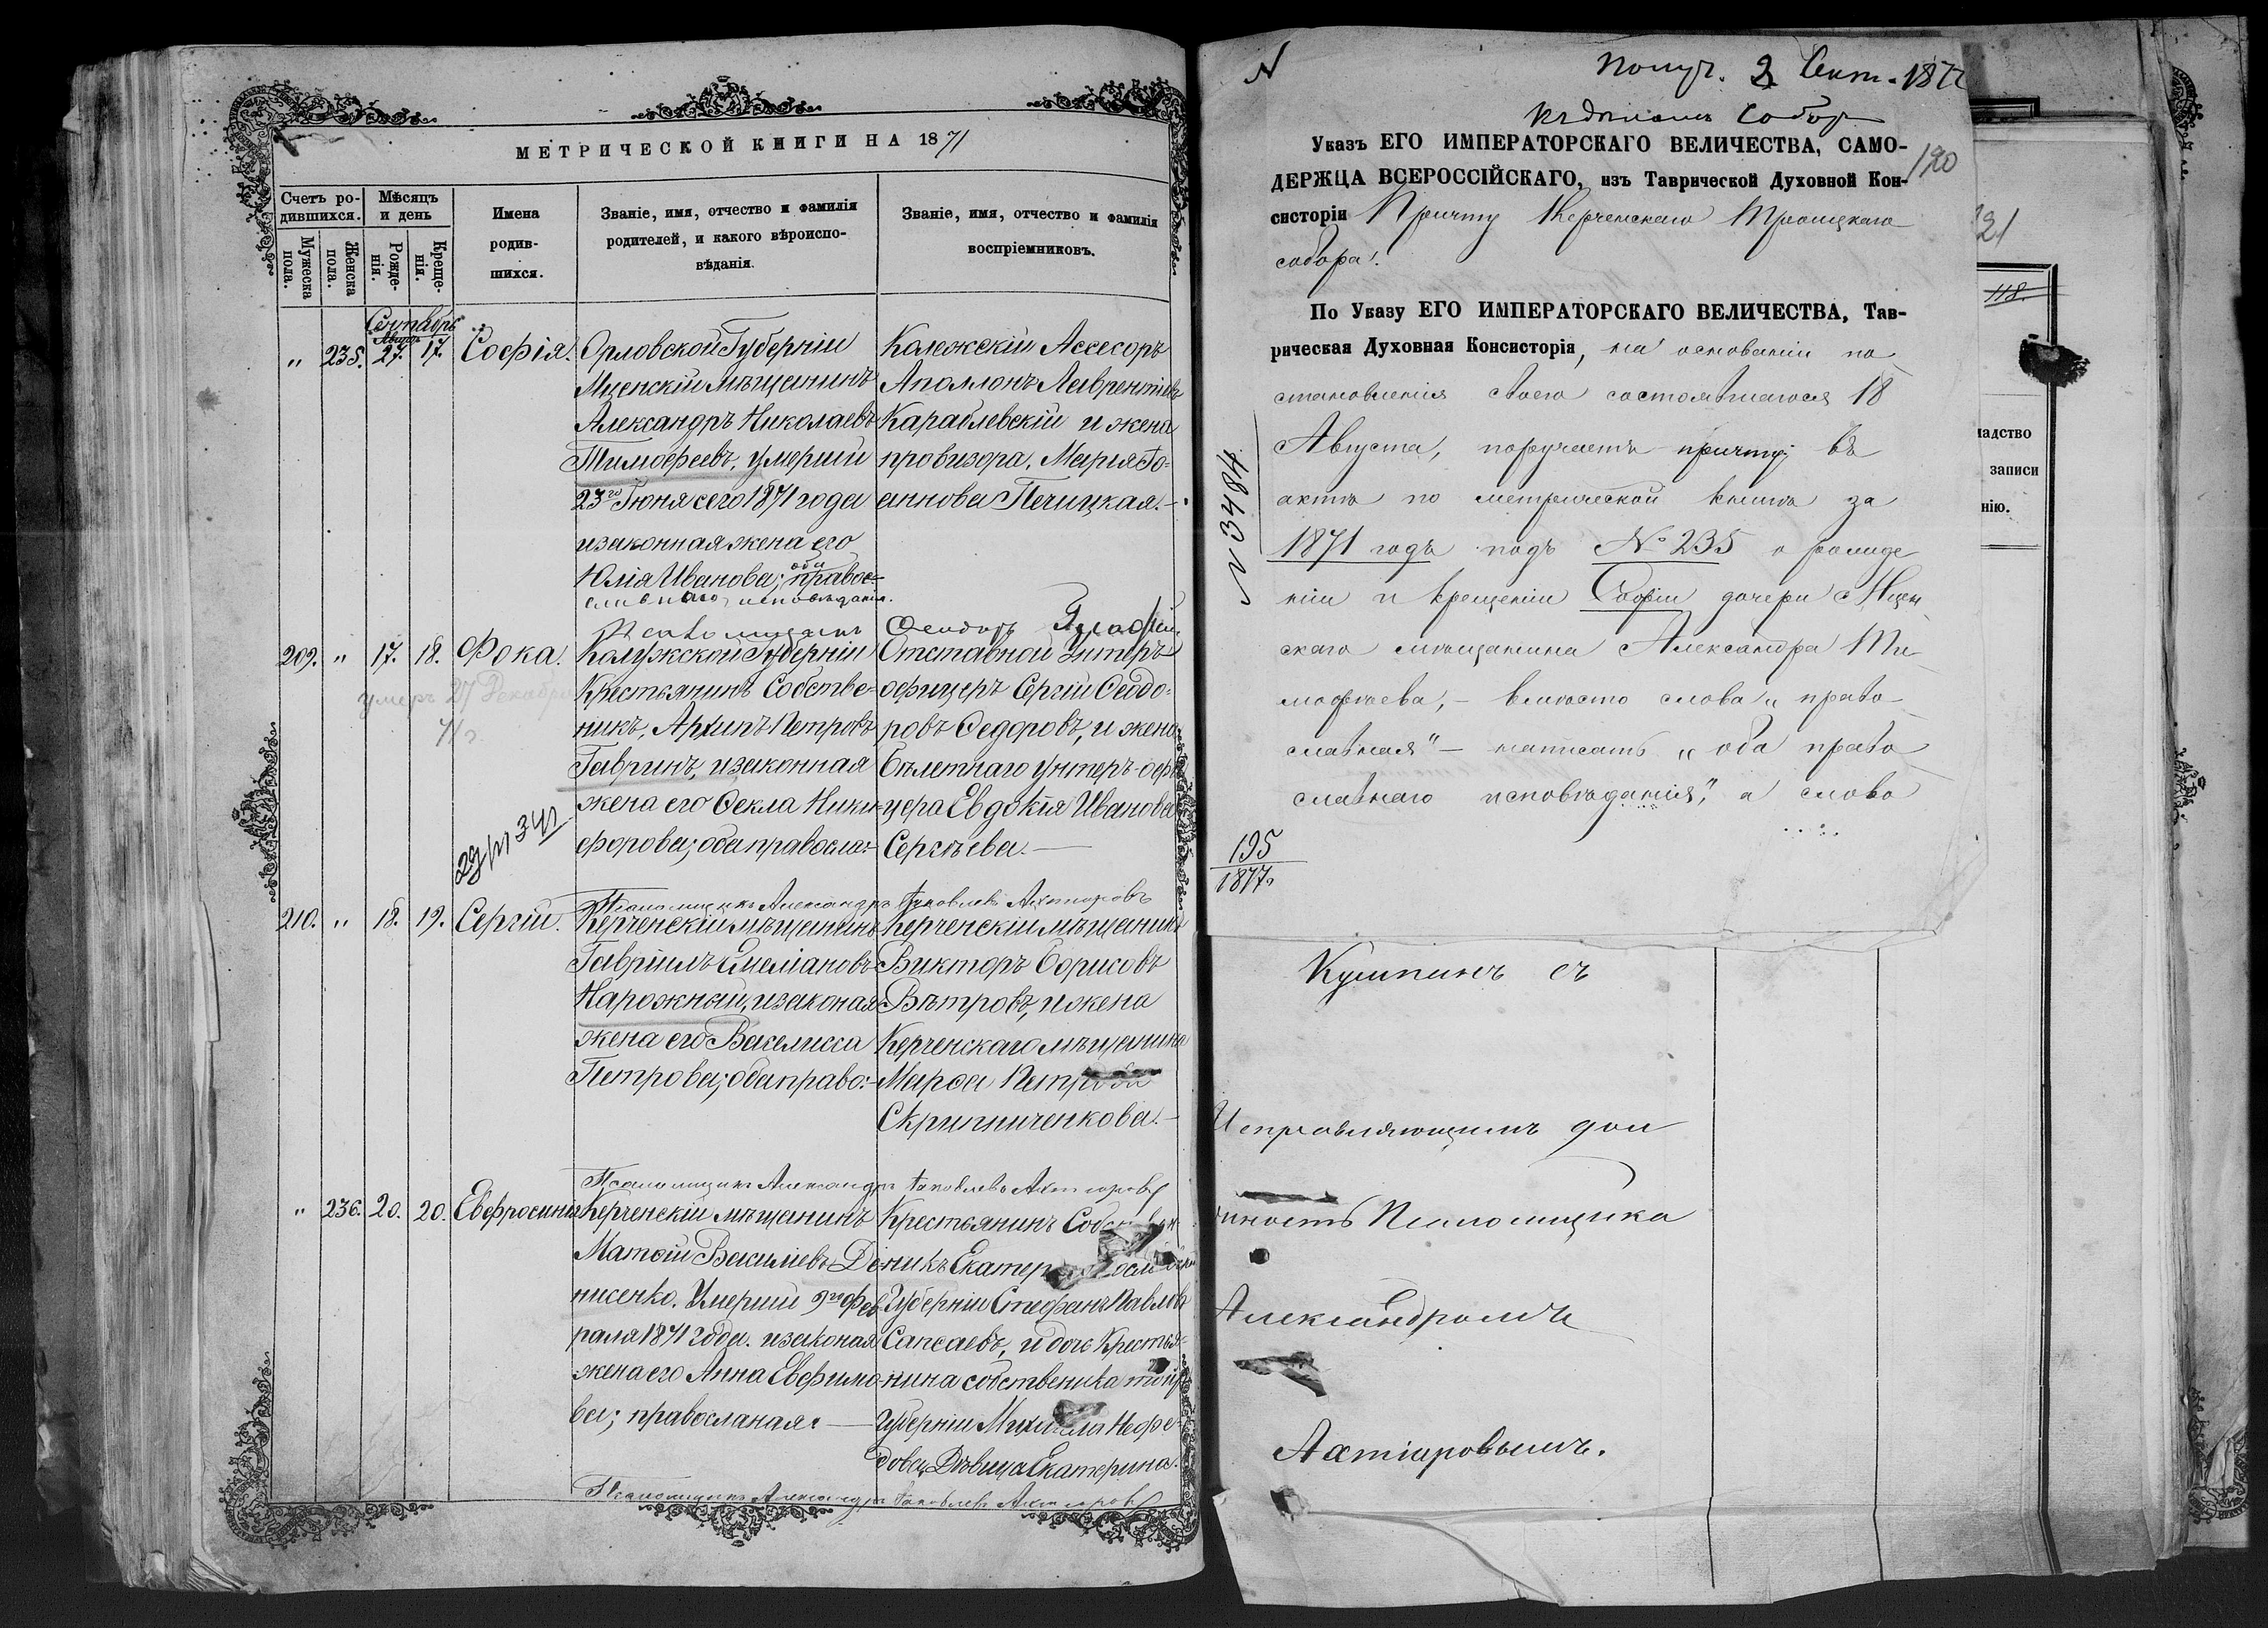 МЕТРИЧЕСКОЙ КНИГИ НА 1871
Счетъ ро-
дившихся.
Мужеска
пола.
Женска
пола.
Мѣсяцъ
и день
Рожде-
нія.
Креще-
нія.
Имена
родив-
шихся.
Званіе, имя, отчество и фамилія
родителей, и какого вѣроиспо-
вѣданія.
Званіе, имя, отчество и фамилія
воспріемниковъ.
Сентябрь
„ 235. 27. 17. Софія.
Орловской Губерніи
Мценскій мѣщанинъ
Александръ Николаевъ
Тимофеевъ, умерший
23го Іюня сего 1871 года
и законная жена его
Юлія Иванова; оба правос-
славнаго исповѣданія.
Колежскій Ассесоръ
Аполлонъ Лаврентіевъ
Караблевскій и жена
провизора, Марія Іо-
аннова Печицкая.
209. „ 17. 18. Фока.
умеръ 27 Декабря
71 г
Калужской Губерніи
Крестьянинъ Собстве-
никъ, Архипъ Петровъ
Гавринъ, и законная
жена его Ѳекла Ники-
форова; оба правосла:
Отставной Унтеръ
офицеръ Сергій Ѳеодо-
ровъ Ѳедоровъ, и жена
билетнаго унтеръ-офи
цера Евдокія Иванова
Сергѣева.
Псаломщикъ Александръ Яковлевъ Ахтіаровъ
210. „ 18. 19. Сергій.
Керченскій мѣщанинъ
Гавріилъ Емеліановъ
Нарожный, и законая
жена его Васелисса
Петрова; оба право:
Керченскій мѣщанинъ
Викторъ Борисовъ
Вѣтровъ, и жена
Керченскаго мѣщанина
Марѳа Петрова
Скрипниченкова.
Псаломщикъ Александръ Яковлевъ Ахтіаровъ
„ 236. 20. 20. Евфросинія
Керченскій мѣщанинъ
Матѳій Василіевъ Де
нисенко. Умерший 9го Фев
раля 1871 года. и законая
жена его Анна Евфимо
ва; православная.
Крестьянинъ Собствен
никъ
Губерніи Стефанъ Павловъ
Сапсаевъ, и дочь Крестья-
нина собственика той
губерніи Михаила Нефе-
дова, Дѣвица Екатерина.
Псаломщикъ Александръ Яковлевъ Ахтіаровъ
Получ. 2 Сент. 1877
Къ дѣламъ Собора
120
Указъ ЕГО ИМПЕРАТОРСКАГО ВЕЛИЧЕСТВА, САМО-
ДЕРЖЦА ВСЕРОССІЙСКАГО, изъ Таврической Духовной Кон-
систоріи Причту Керченскаго Троицкаго
собора.
По Указу ЕГО ИМПЕРАТОРСКАГО ВЕЛИЧЕСТВА, Тав-
рическая Духовная Консисторія, на основаніи по
становленія своего состоявшагося 18
Августа, поручаетъ причту въ
актѣ по метрической книгѣ за
1871 годъ подъ № 235 о рожде
ніи и крещеніи Софіи дочери Мцен
скаго мѣщанина Александра Ти
мофѣева, - вмѣсто слова „право-
славная" - написать „оба право
славнаго исповѣданія," а слово
№ 3484
195
1877
Кушнинъ съ
Исправляющимъ дол
жность Псаломщика
Александромъ
Ахтіаровымъ.
118.
записи
нію.